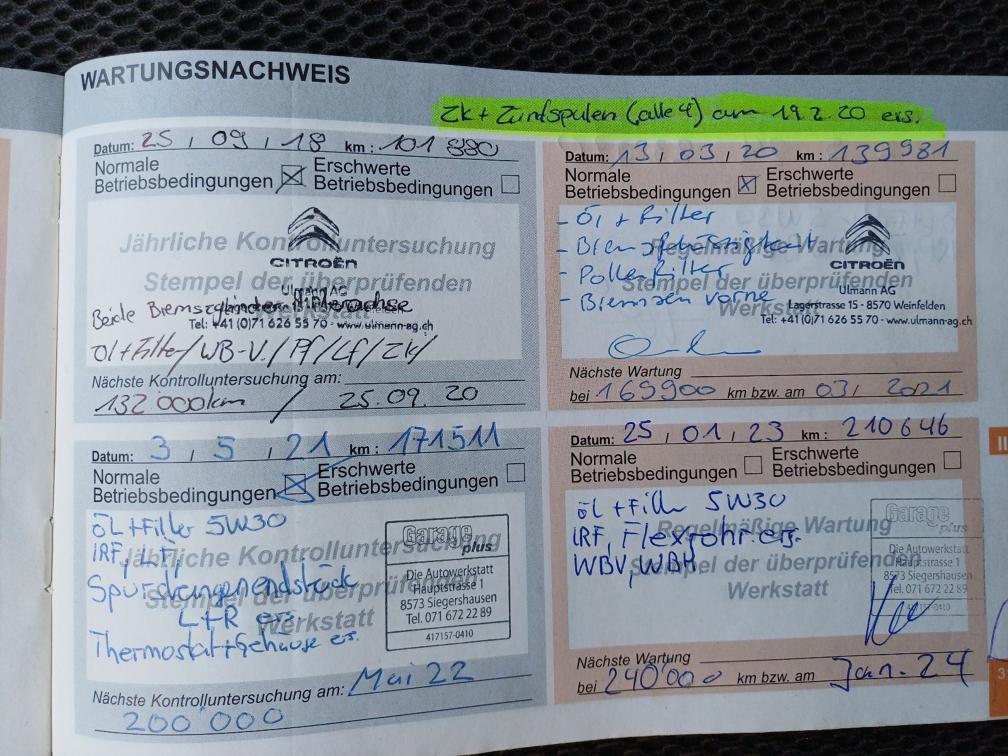 WARTUNGSNACHWEIS
Zk + Zündspulen (alle 4) am 19.2.20 ers.
Datum: 25 , 09 , 18 km : 101 880
Normale
Betriebsbedingungen
Erschwerte
Betriebsbedingungen
Jährliche Kontrolluntersuchung
CITROËN
Stempel der überprüfenden
Werkstatt
Ulmann AG
Beide Bremszylinder Hinterachse
Tel: +41 (0)71 626 55 70 - www.ulmann-ag.ch
Öl+Filter/WB-V./Pf/Lf/Zk/
Nächste Kontrolluntersuchung am:
132 000km / 25.09.20
Datum: 13 , 03 , 20 km : 139981
Normale
Betriebsbedingungen
Erschwerte
Betriebsbedingungen
- Öl + Filter
- Bremsflüssigkeit
Regelmäßige Wartung
CITROËN
- Pollenfilter
Stempel der überprüfenden
Werkstatt
- Bremsen vorne
Ulmann AG
Lagerstrasse 15 - 8570 Weinfelden
Tel: +41 (0)71 626 55 70 - www.ulmann-ag.ch
Nächste Wartung
bei 169900 km bzw. am 03/ 2021
Datum: 3 , 5 , 21 km : 171511
Normale
Betriebsbedingungen
Erschwerte
Betriebsbedingungen
öL+Filter 5W30
IRF, LF,
Jährliche Kontrolluntersuchung
Stempel der überprüfenden
Werkstatt
Spurstangenendstück
L+R ers.
Thermostat+Gehäuse ers.
Garage
plus
Die Autowerkstatt
Hauptstrasse 1
8573 Siegershausen
Tel. 071 672 22 89
417157-0410
Nächste Kontrolluntersuchung am: Mai 22
200'000
Datum: 25 , 01 , 23 km : 210646
Normale
Betriebsbedingungen
Erschwerte
Betriebsbedingungen
öL+Filter 5W30
IRF, Flexrohr ers.
WBV, WBH
Regelmäßige Wartung
Stempel der überprüfenden
Werkstatt
Garage
plus
Die Autowerkstatt
Hauptstrasse 1
8573 Siegershausen
Tel. 071 672 22 89
417157-0410
Nächste Wartung
bei 240'000 km bzw. am Jan. 24